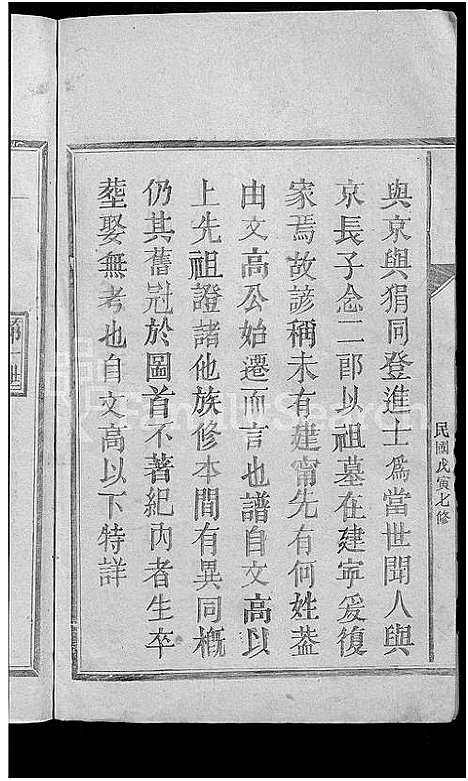 民國戊寅七修
與京與狷同登進士爲當世聞人與
京長子念二郎以祖墓在建寧爰復
家焉故諺稱未有建甯先有何姓葢
由文高公始遷而言也譜自文高以
上先祖證諸他族修本間有異同槪
仍其舊冠於圖首不著紀內者生卒
塟娶無考也自文高以下特詳
第一世
FamilySearch